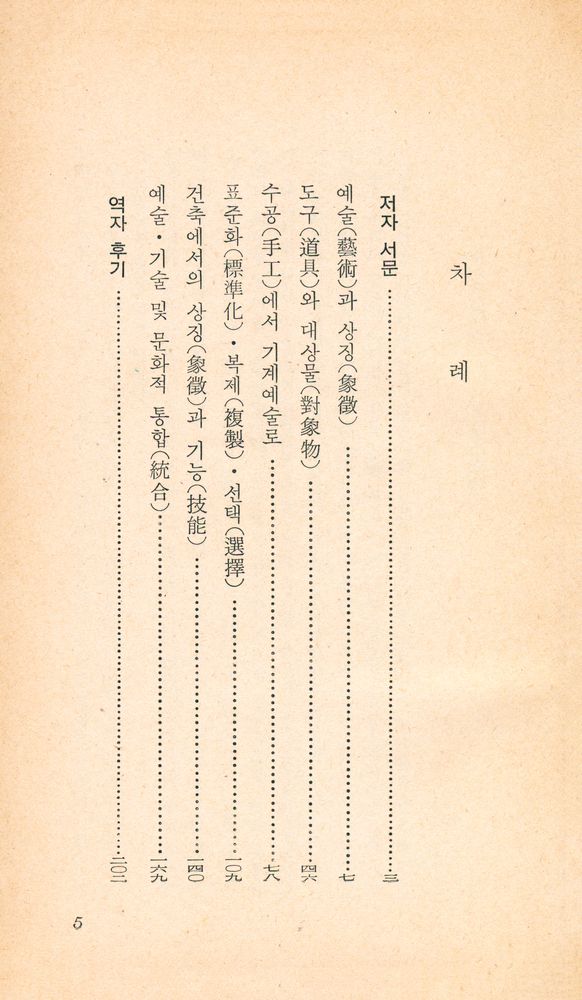 차 례
저자 서문……三
예술(藝術)과 상징(象徵)……七
도구(道具)와 대상물(對象物)……四六
수공(手工)에서 기계예술로……七八
표준화(標準化)・복제(複製)・선택(選擇)……一〇九
건축에서의 상징(象徵)과 기능(技能)……一四〇
예술・기술 및 문화적 통합(統合)……一六九
역자 후기……二〇二
5